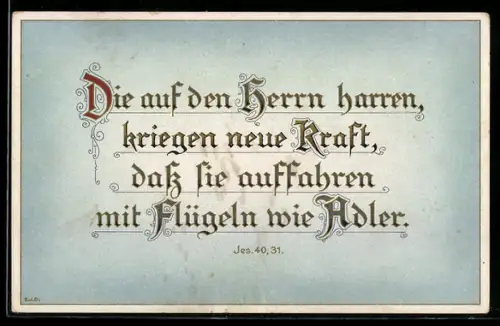 Die auf den Herrn harren,
kriegen neue Kraft,
daß sie auffahren
mit Flügeln wie Adler.
Jes. 40, 31.